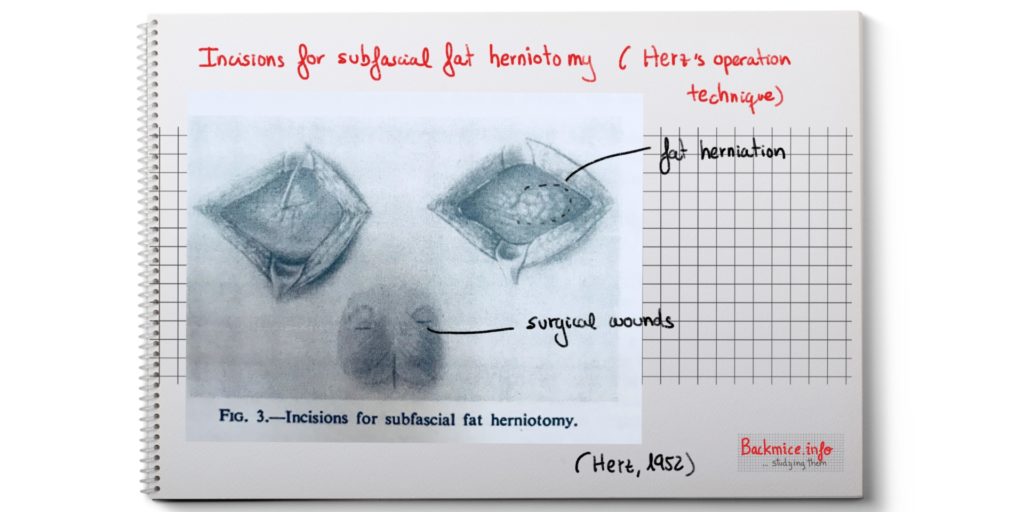 Incisions for subfascial fat herniotomy (Herz's operation
technique)
fat herniation
surgical wounds
FIG. 3.—Incisions for subfascial fat herniotomy.
(Herz, 1952)
Backmice.info
... studying them